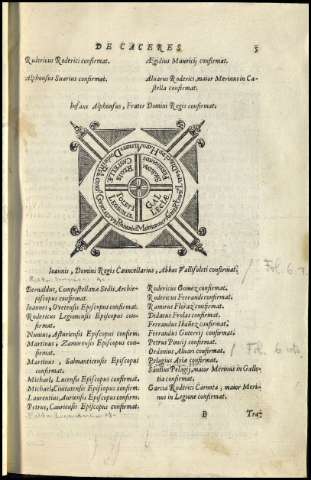 DE CACERES
5
Rudericus Roderici confirmat.
Ægidius Mauricij confirmat.
Alphonsus Suarius confirmat.
Aluarus Roderici, maior Merinus in Ca-
stella confirmat.
Infans Alphonsus, Frater Domini Regis confirmat.
Ioannis, Domini Regis Cancellarius, Abbas Vallisoleti confirmat.
Bernaldus, Compostellanæ Sedis Archie-
piscopus confirmat.
Ioannes, Ouetensis Episcopus confirmat.
Rodericus Legionensis Episcopus
confirmat.
Nunius, Asturiensis Episcopus confirm.
Martinus, Zamorensis Episcopus con-
firmat.
Martinus, Salmanticensis Episcopus
confirmat.
Michael, Lucensis Episcopus confirmat.
Michael, Ciuitatensis Episcopus confirmat.
Laurentius, Auriensis Episcopus confirm.
Petrus, Cauriensis Episcopus confirmat.
Rodericus Gomez confirmat.
Rodericus Ferrandi confirmat.
Ramirus Floraz confirmat.
Didacus Frolas confirmat.
Ferrandus Ibañez confirmat.
Ferrandus Guterrij confirmat.
Petrus Poncij confirmat.
Ordonius Aluari confirmat.
Pelagius Aria confirmat.
Santius Pelagij, maior Merinus in Galle-
tia confirmat.
Garcia Roderici Carnota, maior Meri-
nus in Legione confirmat.
B
Tra-